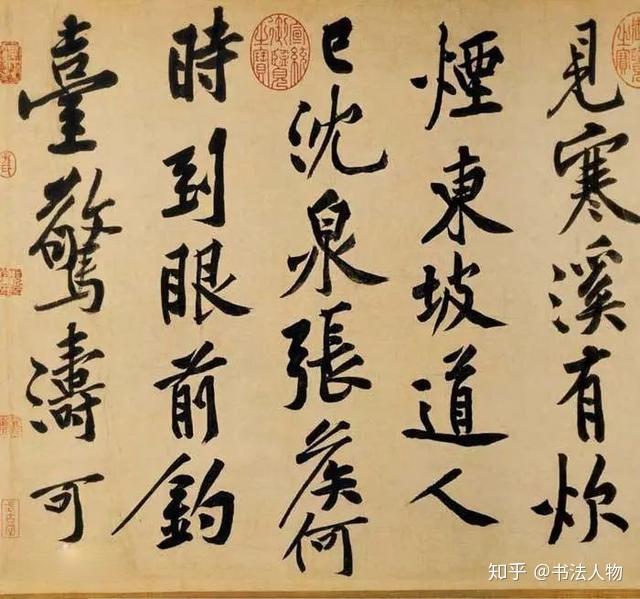 見寒溪有炊
煙東坡道人
已沈泉張侯何
時到眼前釣
臺驚濤可
宣統御覽之寶
知乎 @书法人物